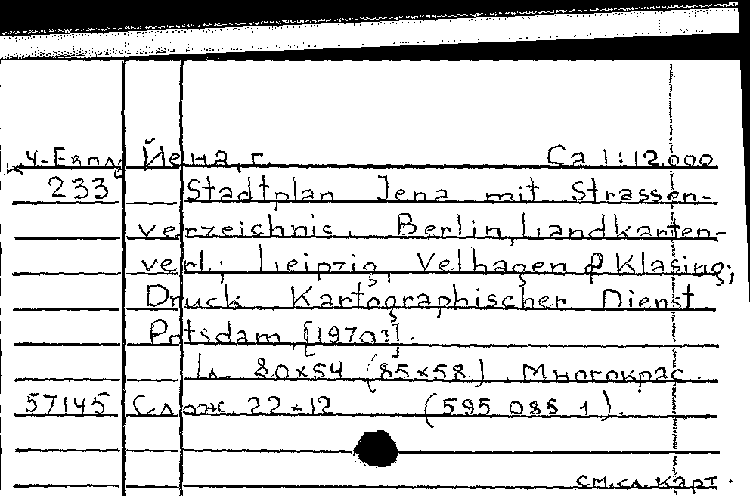 Ч-Евпл Йена, г. Ca 1:12.000
233 Stadtplan Jena mit Strassen-
verzeichnis. Berlin, Landkarten-
verl.; Leipzig, Velhagen & Klasing;
Druck Kartographischer Dienst
Potsdam [1970?].
1л. 80x54 (85x58). Многокрас.
57145 Слож. 22x12 (595 085 1).
см. сл. карт.